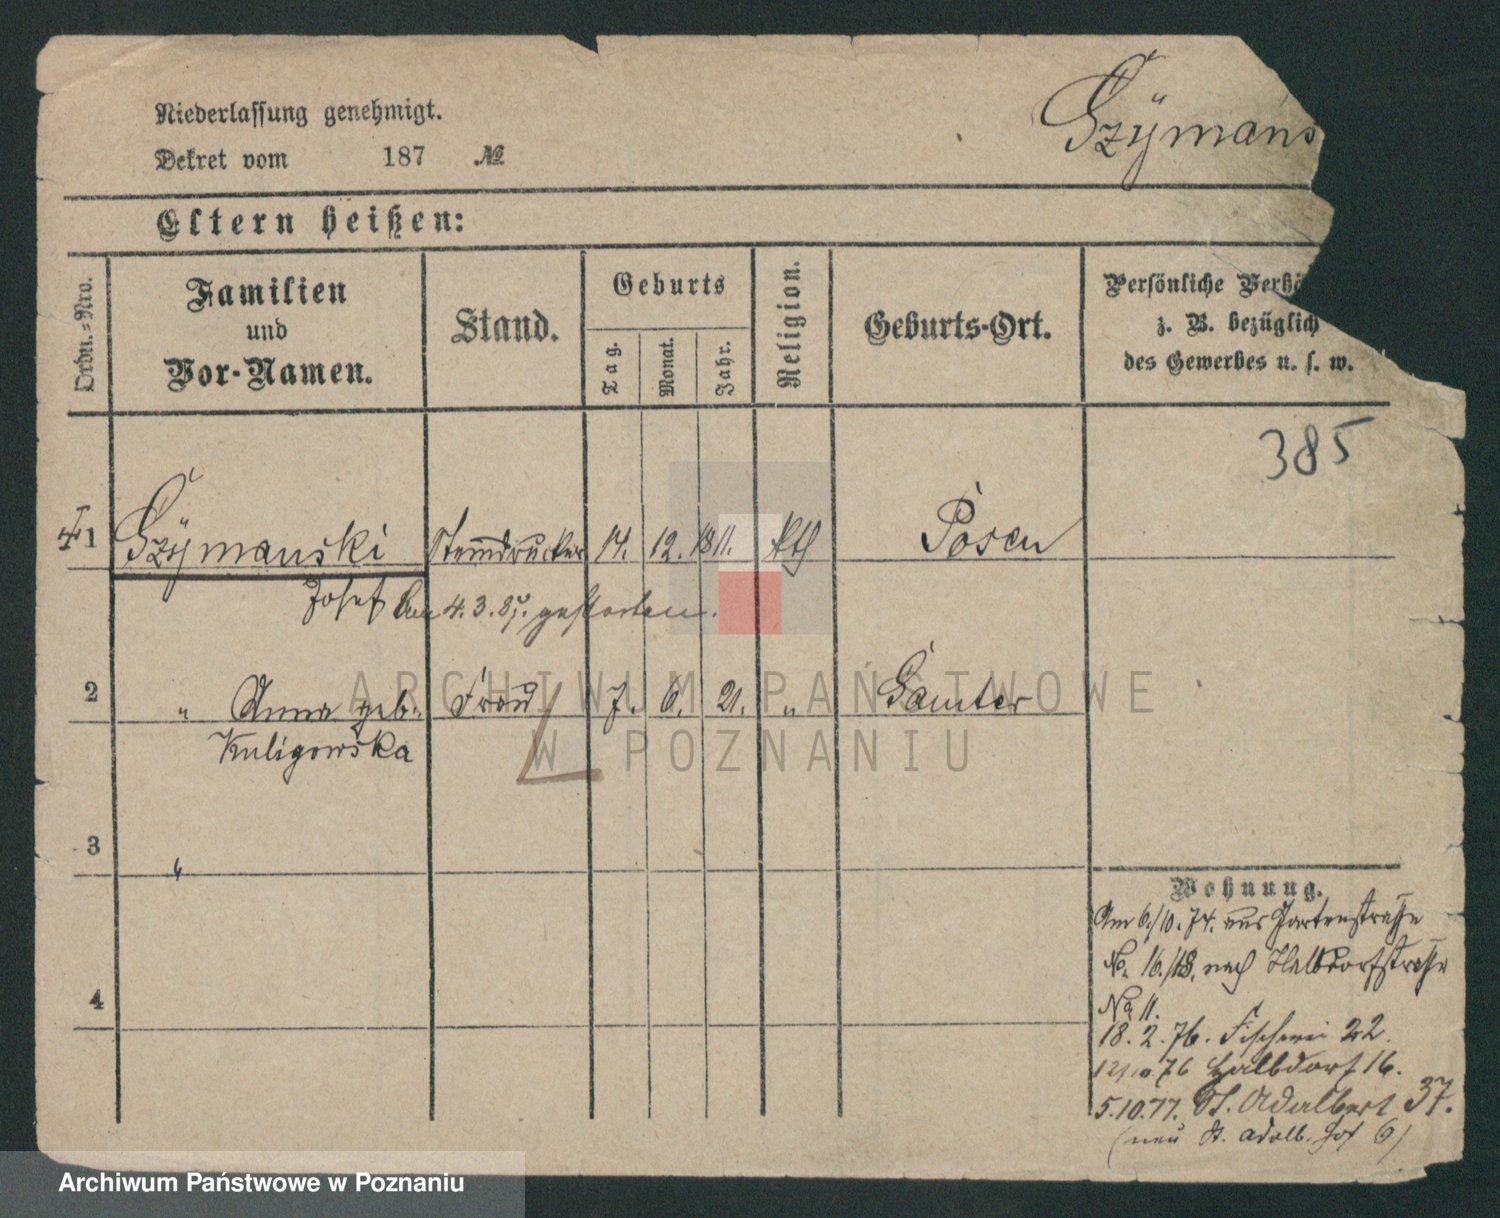 Niederlassung genehmigt.
Dekret vom 187 №
Szÿmans
Eltern heißen:
Ordn.-Nro.
Familien
und
Vor-Namen.
Stand.
Geburts
Tag.
Monat.
Jahr.
Religion.
Geburts-Ort.
Persönliche Verhä
z. B. bezüglich
des Gewerbes u. s. w.
385
1 Szÿmanski Steindrucker 14. 12. 1811. kth Posen
Josef Am 4. 3. 85. gestorben.
2 " Anna geb. Frau 7. 6. 21. " Samter
Kuligowska
3 "
4
Wohnung.
Am 6./10. 74. aus Gartenstraße
No. 16./18. nach Halbdorfstraße
No 11.
18. 2. 76. Fischerei 22.
76 Halbdorf 16.
5.10.77. St. Adalbert 37.
(neu St. Adalb. 6)
ARCHIWUM PAŃSTWOWE
W POZNANIU
Archiwum Państwowe w Poznaniu